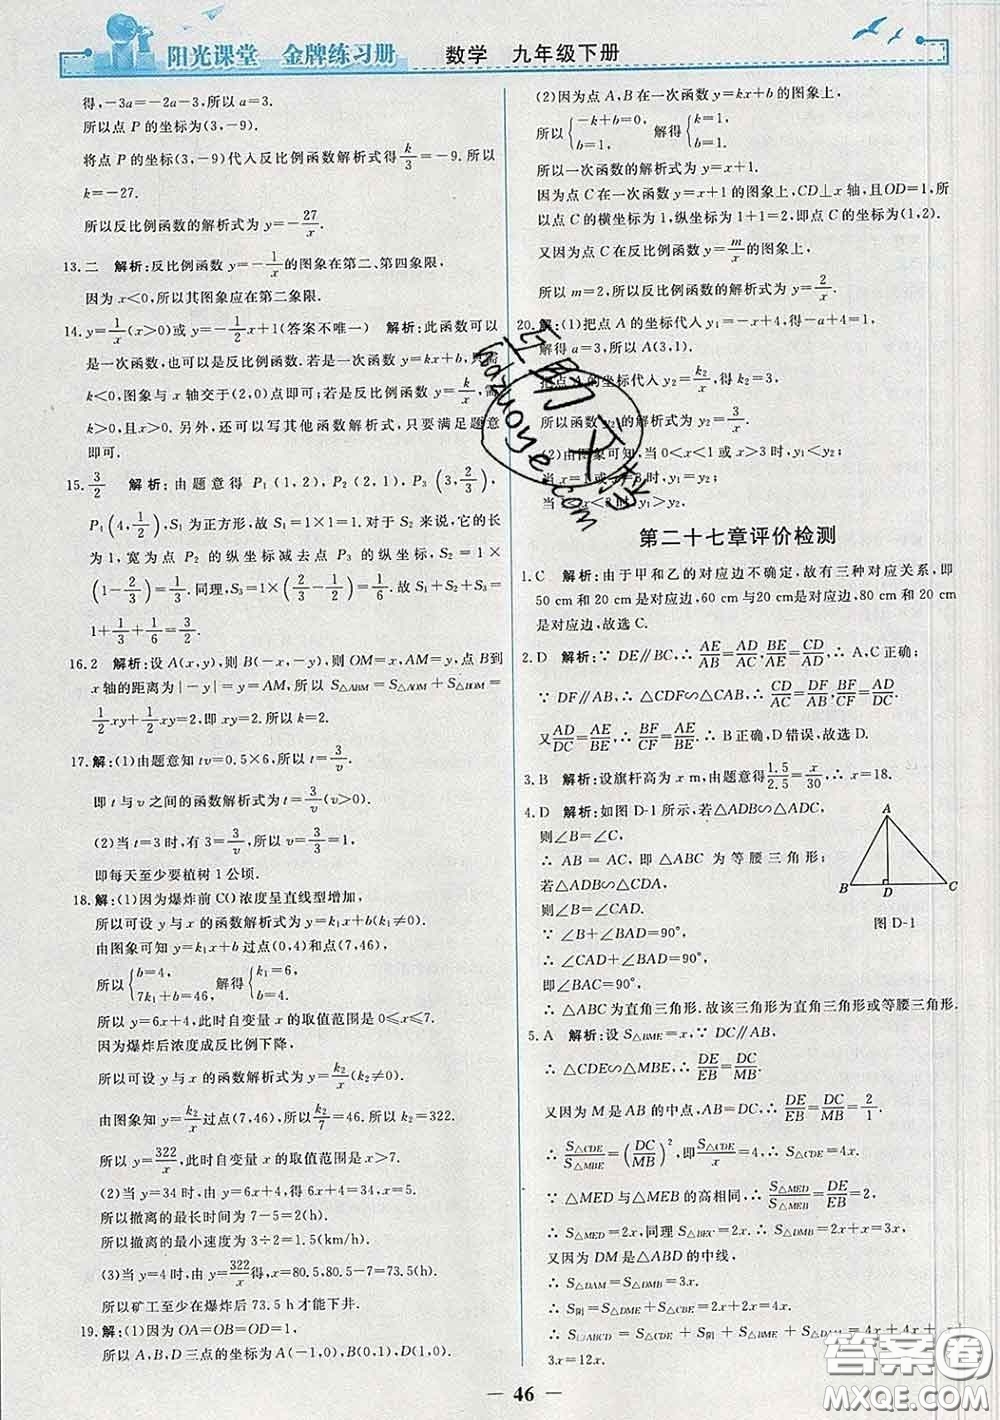 阳光课堂 金牌练习册 数学 九年级下册
得,-3a=-2a-3,所以a=3.
所以点P的坐标为(3,-9).
将点P的坐标(3,-9)代入反比例函数解析式得k/3=-9.所以
k=-27.
所以反比例函数的解析式为y=-27/x.
13.二 解析:反比例函数y=-1/x的图象在第二、第四象限,
因为x<0,所以其图象应在第二象限.
14.y=1/x(x>0)或y=-1/2x+1(答案不唯一) 解析:此函数可以
是一次函数,也可以是反比例函数.若是一次函数y=kx+b,只需
k<0,图象与x轴交于(2,0)点即可;若是反比例函数y=k/x,需
k>0,且x>0.另外,还可以写其他函数解析式,只要满足题意
即可.
15.3/2 解析:由题意得P₁(1,2),P₂(2,1),P₃(3,2/3),
P₄(4,1/2),S₁为正方形,故S₁=1×1=1.对于S₂来说,它的长
为1,宽为点P₂的纵坐标减去点P₃的纵坐标,S₂=1×
(1-2/3)=1/3.同理,S₃=1×(2/3-1/2)=1/6.故S₁+S₂+S₃=
1+1/3+1/6=3/2.
16.2 解析:设A(x,y),则B(-x,-y),则OM=x,AM=y,点B到
x轴的距离为|-y|=y=AM,所以S△ABM=S△AOM+S△BOM=
1/2xy+1/2xy=2,即xy=2.所以k=2.
17.解:(1)由题意知tv=0.5×6,所以t=3/v.
即t与v之间的函数解析式为t=3/v(v>0).
(2)当t=3时,有3=3/v,所以v=1.
即每天至少要植树1公顷.
18.解:(1)因为爆炸前CO浓度呈直线型增加,
所以可设y与x的函数解析式为y=k₁x+b(k₁≠0).
由图象可知y=k₁x+b过点(0,4)和点(7,46),
所以{b=4, 7k₁+b=46. 解得{k₁=6, b=4.
所以y=6x+4,此时自变量x的取值范围是0≤x≤7.
因为爆炸后浓度成反比例下降,
所以可设y与x的函数解析式为y=k₂/x(k₂≠0).
由图象知y=k₂/x过点(7,46),所以k₂/7=46.所以k₂=322.
所以y=322/x,此时自变量x的取值范围是x>7.
(2)当y=34时,由y=6x+4得,6x+4=34,x=5.
所以撤离的最长时间为7-5=2(h).
所以撤离的最小速度为3÷2=1.5(km/h).
(3)当y=4时,由y=322/x得,x=80.5,80.5-7=73.5(h).
所以矿工至少在爆炸后73.5h才能下井.
19.解:(1)因为OA=OB=OD=1,
所以A,B,D三点的坐标为A(-1,0),B(0,1),D(1,0).
(2)因为点A,B在一次函数y=kx+b的图象上,
所以{-k+b=0, b=1. 解得{k=1, b=1.
所以一次函数的解析式为y=x+1.
因为点C在一次函数y=x+1的图象上,CD⊥x轴,且OD=1,所
以点C的横坐标为1,纵坐标为1+1=2,即点C的坐标为(1,2).
又因为点C在反比例函数y=m/x的图象上,
所以m=2,所以反比例函数的解析式为y=2/x.
20.解:(1)把点A的坐标代入y₁=-x+4,得-a+4=1,
解得a=3,所以A(3,1).
把点A的坐标代入y₂=k₂/x,得k₂=3.
所以函数y₂的解析式为y₂=3/x.
(2)由图象可知,当0<x<1或x>3时,y₁<y₂;
当x=1或x=3时,y₁=y₂;
当1<x<3时,y₁>y₂.
第二十七章评价检测
1.C 解析:由于甲和乙的对应边不确定,故有三种对应关系,即
50 cm和20 cm是对应边,60 cm与20cm是对应边,80 cm和20 cm
是对应边,故选C.
2.D 解析:∵DE∥BC,∴AE/AB=AD/AC,BE/AE=CD/AD,∴A,C正确;
∵DF∥AB,∴△CDF∽△CAB,∴CD/AC=DF/AB,BF/CF=AD/DC.
又AD/DC=AE/BE,∴BF/CF=AE/BE.∴B正确,D错误,故选D.
3.B 解析:设旗杆高为x m,由题意得1.5/2.5=x/30,∴x=18.
4.D 解析:如图D-1所示,若△ADB∽△ADC,
则∠B=∠C,
∴AB=AC,即△ABC为等腰三角形;
若△ADB∽△CDA,
则∠B=∠CAD.
∵∠B+∠BAD=90°,
∴∠CAD+∠BAD=90°,
即∠BAC=90°.
∴△ABC为直角三角形.故该三角形为直角三角形或等腰三角形.
A
B D C
图D-1
5.A 解析:设S△BME=x,∵DC∥AB,
∴△CDE∽△MBE,∴DE/EB=DC/MB.
又因为M是AB的中点,AB=DC,∴DE/EB=DC/MB=2/1.
∴S△CDE/S△MBE=(DC/MB)²,即S△CDE/x=4.∴S△CDE=4x.
∵△MED与△MEB的高相同,∴S△MED/S△MEB=DE/EB=2,
∴S△MED=2x,同理S△BEC=2x.∴S△DMB=2x+x=3x.
又因为DM是△ABD的中线,
∴S△DAM=S△DMB=3x.
∴S阴=S△DME+S△CBE=2x+2x=4x.
∴S□ABCD=S△CDE+S阴+S△BME+S△DAM=4x+4x+x+
3x=12x.
46
互助文档
hdzuoye.com
答案圈
MXQE.COM